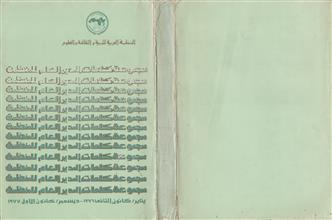 المنظمة العربية للتربية والثقافة والعلوم
مجموعة كلمات المدير العام للمنظمة
مجموعة كلمات المدير العام للمنظمة
مجموعة كلمات المدير العام للمنظمة
مجموعة كلمات المدير العام للمنظمة
مجموعة كلمات المدير العام للمنظمة
مجموعة كلمات المدير العام للمنظمة
مجموعة كلمات المدير العام للمنظمة
مجموعة كلمات المدير العام للمنظمة
مجموعة كلمات المدير العام للمنظمة
مجموعة كلمات المدير العام للمنظمة
مجموعة كلمات المدير العام للمنظمة
يناير/كانون الثاني ١٩٧٦ - ديسمبر/كانون الأول ١٩٧٧